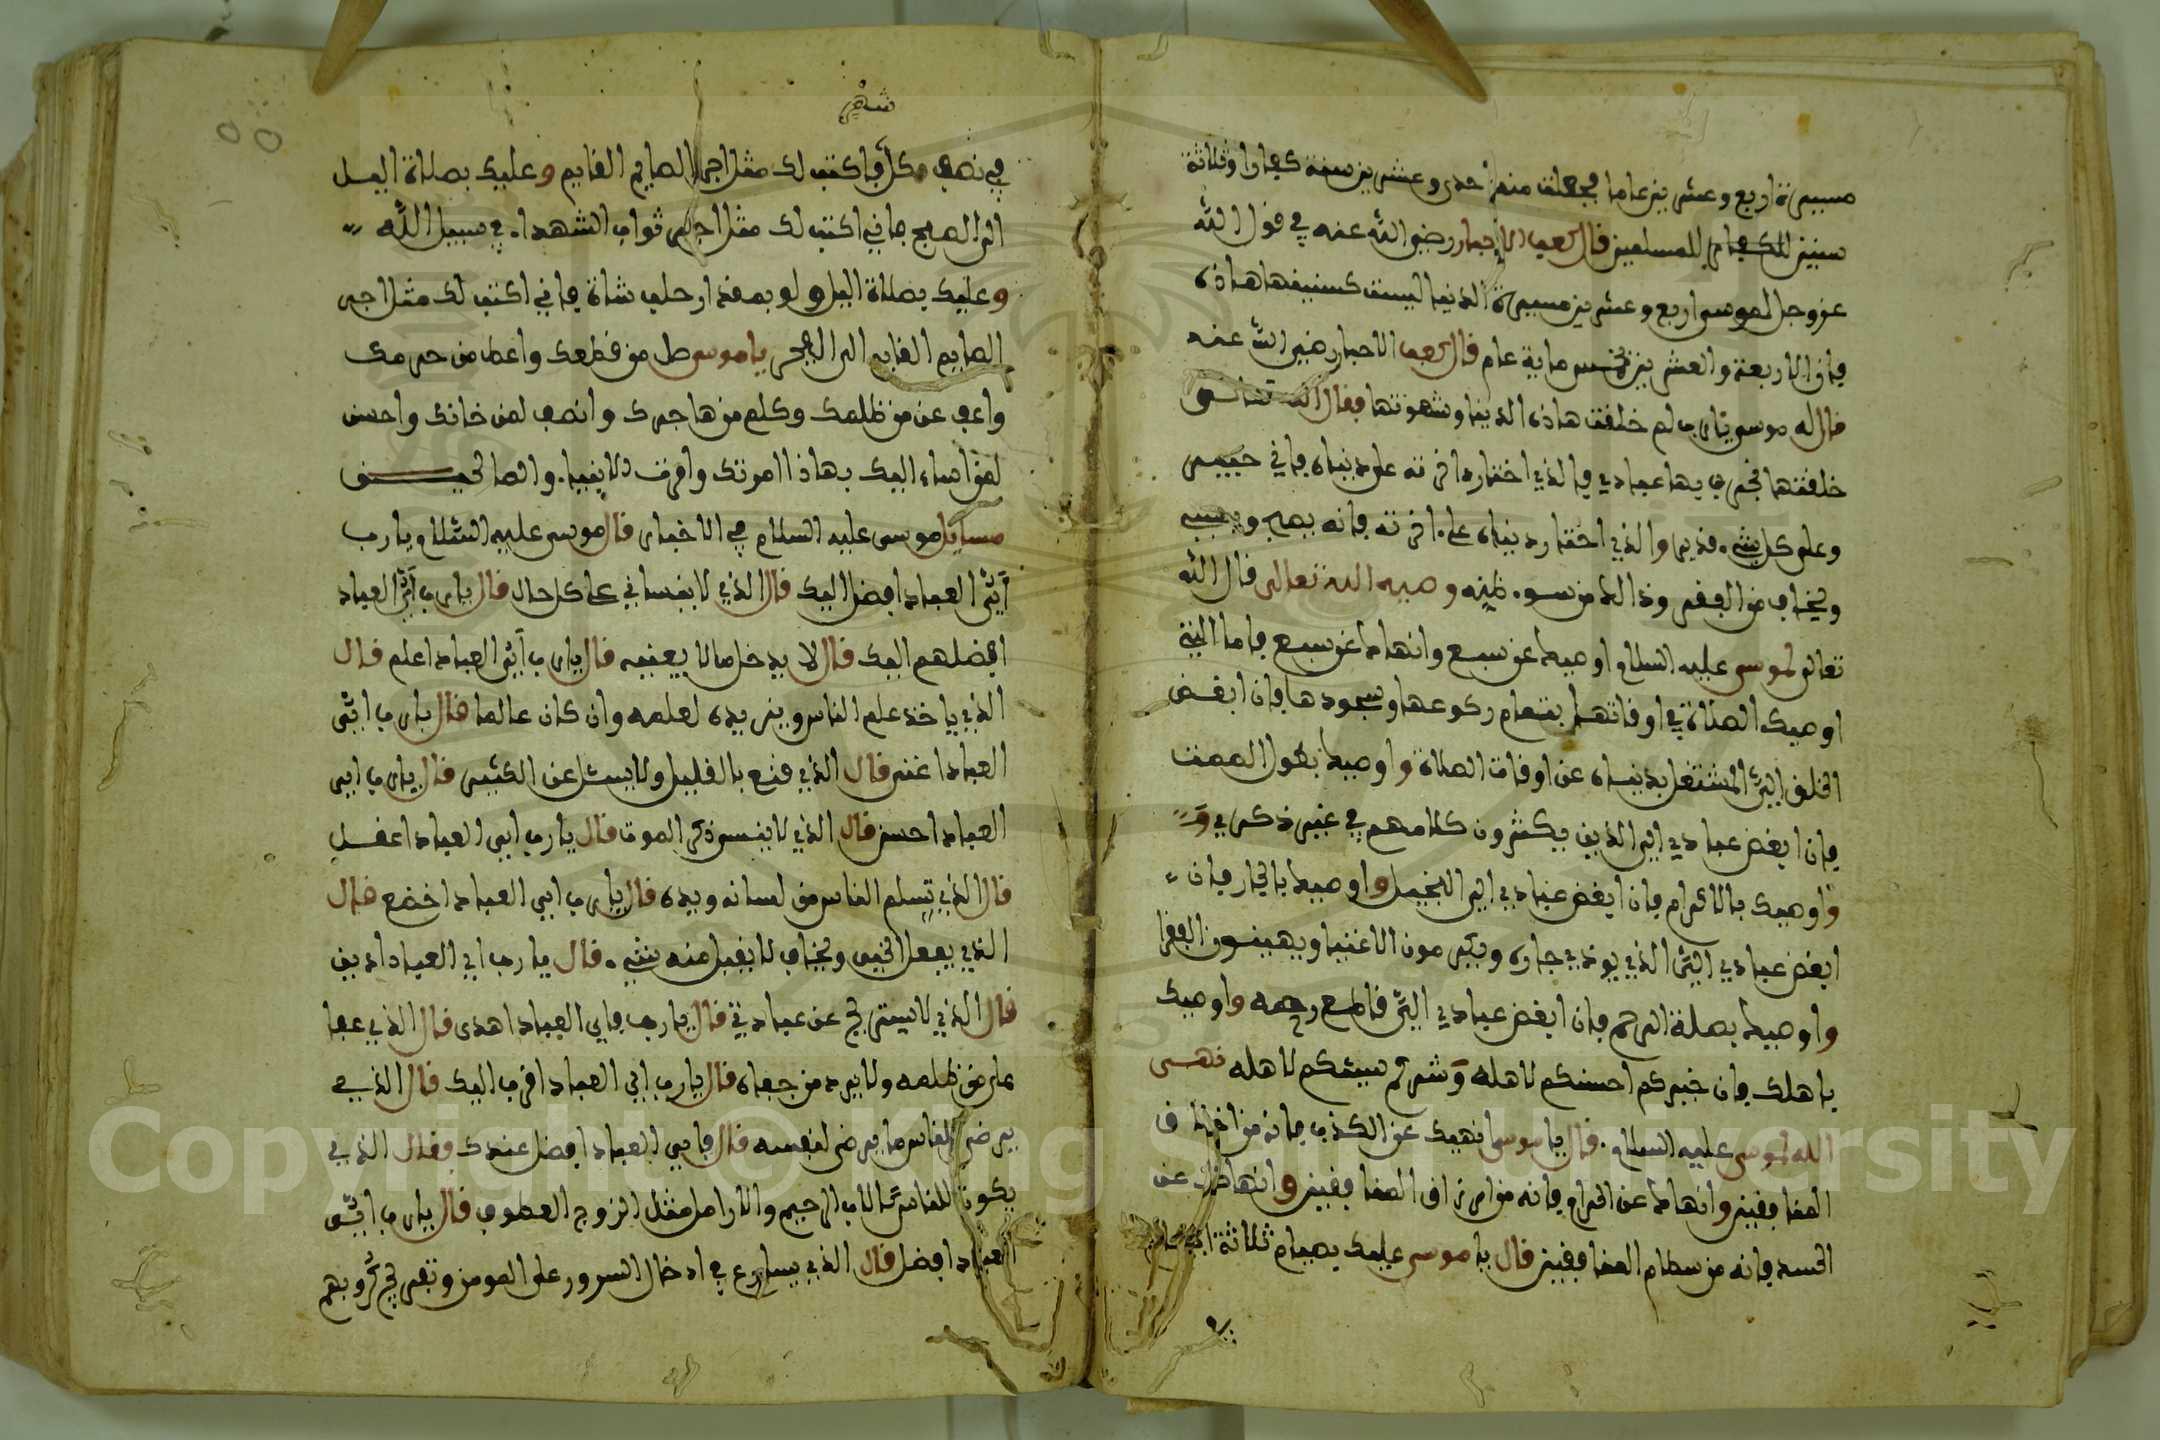 مسيرة اربع وعشرين عاما فجعلت منها احدى وعشرين سنة كفارا وثلاثة
سنين للمسلمين قال كعب الاحبار رضي الله عنه في قول الله
عز وجل لموسى اربع وعشرين مسيرة الدنيا ليست كسنينها هاذه
فان الاربعة والعشرين بخمس ماية عام قال كعب الاحبار رضي الله عنه
قال له موسى يارب لم خلقت هاذه الدنيا وشهوتها فقال الله تعالى
خلقتها نجرب بها عبادي فالذي اختار اخرته على دنياه فاني حبيبه
وعلى كل شيء قدير والذي اختار دنياه على اخرته فانه
ويخاف من الفقر وذالك من سوء ظنه وصية الله تعالى قال الله
تعالى لموسى عليه السلام اوصيك عن سبع وانهاك عن سبع فاما التي
اوصيك الصلاة في اوقاتها بتمام ركوعها وسجودها فان ابغض
الخلق الي المشتغل بدنياه عن اوقات الصلاة واوصيك بطول الصمت
فان ابغض عبادي الي الذين يكثرون كلامهم في غير ذكري
واوصيك بالاكرام فان ابغض عبادي الي البخيل واوصيك بالجار فان
ابغض عبادي الي الذي يوذي جاره ويكرمون الاغنيا ويهينون الفقرا
واوصيك بصلة الرحم فان ابغض عبادي الي قاطع رحمه واوصيك
باهلك فان خيركم احسنكم لاهله وشركم سيئكم لاهله نهي
الله لموسى عليه السلام قال ياموسى انهيك عن الكذب فانه من اخلاق
المنافقين وانهاك عن الحرام فانه من ارزاق المنافقين وانهاك عن
الحسد فانه من سطام المنافقين قال ياموسى عليك بصيام ثلاثة ايام
شهر
في نصف كل فاكتب لك مثل اجر الصايم القايم وعليك بصلاة اليل
الى الصبح فاني اكتب لك مثل اجر ثواب الشهداء في سبيل الله
وعليك بصلاة اليل ولو بمقدار حلب شاة فاني اكتب لك مثل اجر
الصايم القايم الى الفجر ياموسى صل من قطعك واعط من حرمك
واعف عن من ظلمك وكلم من هاجرك وانصف لمن خانك واحسن
لمن اساء اليك بهاذا امرتك وامرت الانبياء والصالحين
مسايل موسى عليه السلام في الاخبار قال موسى عليه السلام يارب
اي العباد افضل اليك قال الذي لا ينساني على كل حال قال يارب اي العباد
افضلهم اليك قال لا يدخل مالا يعنيه قال يارب اي العباد اعلم قال
الذي ياخذ علم الناس ويزيده لعلمه وان كان عالما قال يارب اي
العباد اغنى قال الذي قنع بالقليل ولا يسئل عن الكثير قال يارب اي
العباد احسن قال الذي لا ينسى ذكر الموت قال يارب اي العباد اعقل
قال الذي تسلم الناس من لسانه ويده قال يارب اي العباد اخضع قال
الذي يفعل الخير ويخاف لا يقبل منه شيء قال يارب اي العباد ادين
قال الذي لا يستريح عن عبادتي قال يارب فاي العباد اهدى قال الذي عفا
على من ظلمه ولا يرد من جفاه قال يارب اي العباد اقرب اليك قال الذي
يرضى للناس ما يرضى لنفسه قال فاي العباد افضل عندك فقال الذي
يكون للناس كالاب الرحيم والارامل مثل الزوج العطوف قال يارب اي
العباد افضل قال الذي يسارع في ادخال السرور على المومن وتفريج كروبهم